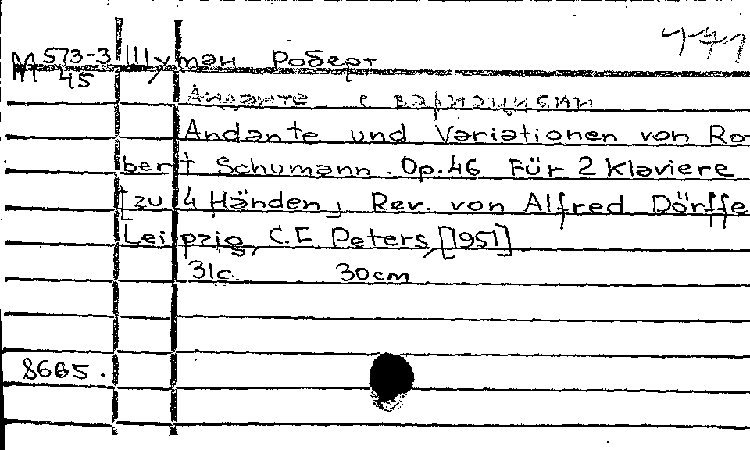 М 573-3 Шуман Роберт
45
Анданте с вариациями
Andante und Variationen von Ro-
bert Schumann. Op.46 Für 2 Klaviere
[zu 4 Händen] Rev. von Alfred Dörffe
Leipzig, C.F. Peters, [1951]
31c. 30cm
8665.